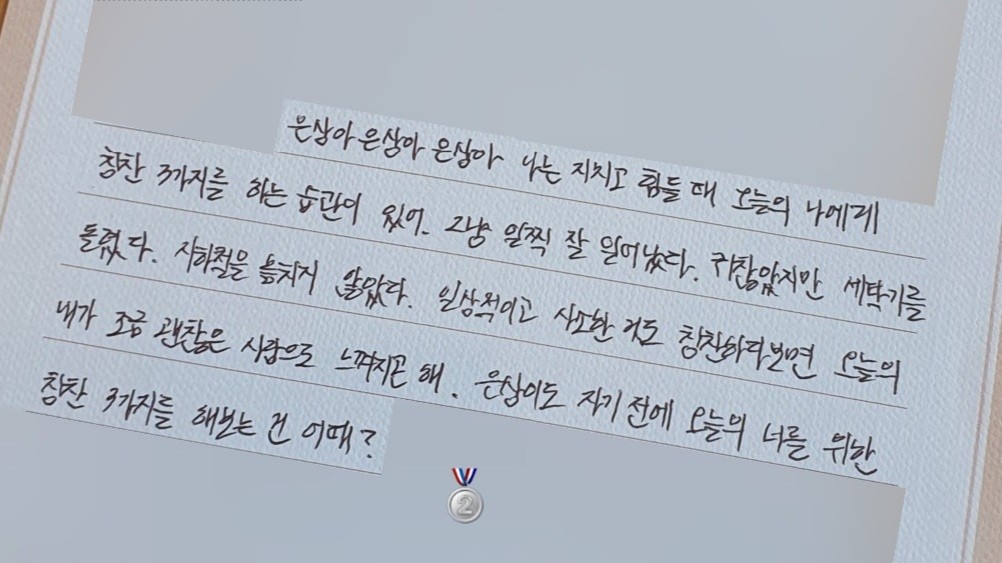 은상아 은상아 은상아 나는 지치고 힘들 때 오늘의 나에게
칭찬 3가지를 하는 습관이 있어. 그냥 일찍 잘 일어났다. 귀찮았지만 세탁기를
돌렸다. 지하철을 놓치지 않았다. 일상적이고 사소한 거도 칭찬하다보면 오늘의
내가 조금 괜찮은 사람으로 느껴지곤 해. 은상이도 자기 전에 오늘의 너를 위한
칭찬 3가지를 해보는 건 어때?
2